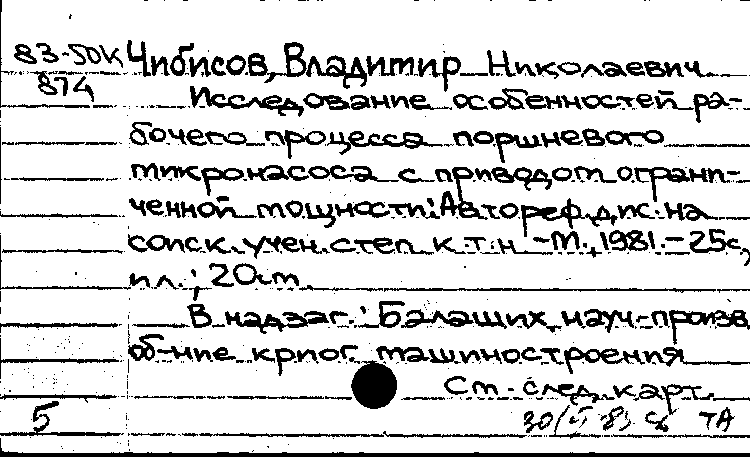 83-50К Чибисов, Владимир Николаевич
874 Исследование особенностей ра-
бочего процесса поршневого
микронасоса с приводом ограни-
ченной мощности: Автореф. дис. на
соиск. учен. степ. к.т.н. - М., 1981. - 25с,
ил.; 20см.
В надзаг.: Балаших. науч-произв
об-ние криог. машиностроения
См. след. карт.
5 ТА